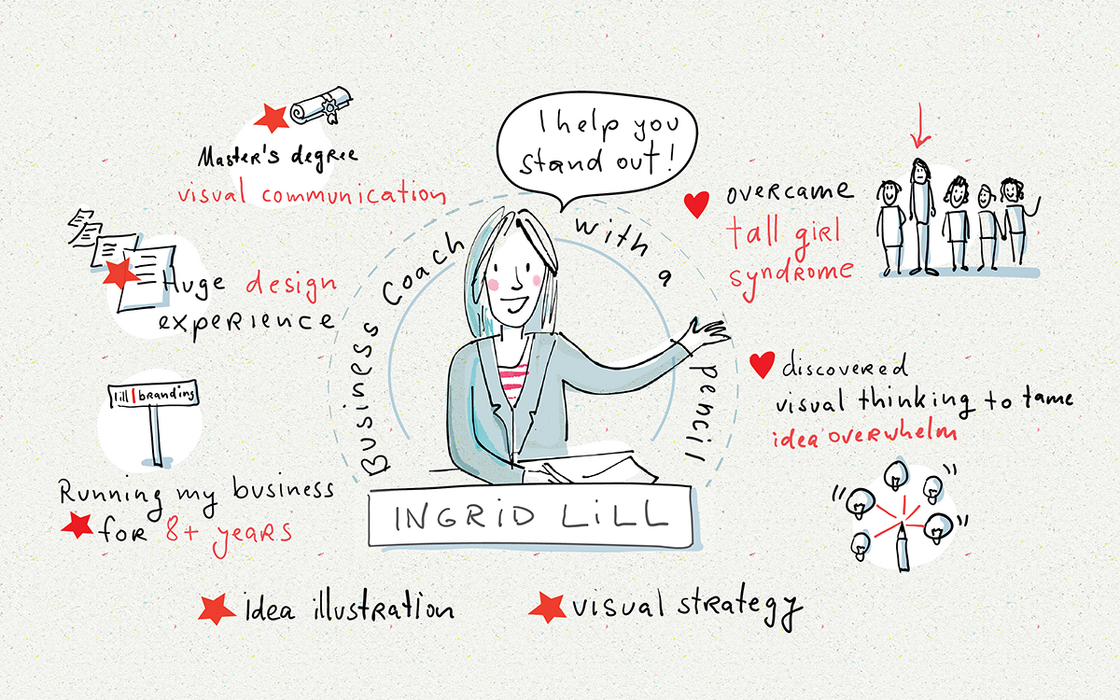 I help you
stand out!
Business Coach with a pencil
INGRID LILL
Master's degree
visual communication
Huge design
experience
lill|branding
Running my business
for 8+ years
overcame
tall girl
syndrome
discovered
visual thinking to tame
idea overwhelm
idea illustration
visual strategy